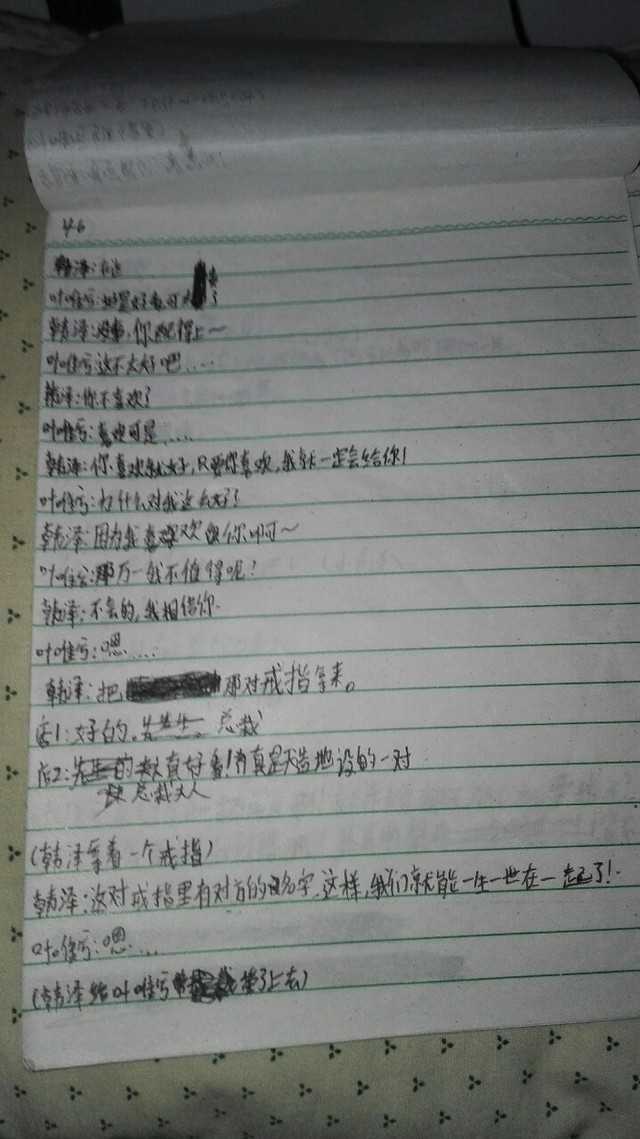 46
韩泽:
叶唯兮:好是好看,可
韩泽:没事,你配得上~
叶唯兮:这不太好吧....
韩泽:你不喜欢?
叶唯兮:喜欢可是....
韩泽:你喜欢就好,只要你喜欢,我就一定会给你!
叶唯兮:为什么对我这么好?
韩泽:因为我喜欢你啊~
叶唯兮:那万一我不值得呢?
韩泽:不会的,我相信你.
叶唯兮:嗯....
韩泽:把那对戒指拿来。
店1:好的,先生.总裁
店2:真好看!真是天造地设的一对
总裁夫人
(韩泽拿着一个戒指)
韩泽:这对戒指里有对方的名字.这样,我们就能一生一世在一起了!
叶唯兮:嗯....
(韩泽给叶唯兮戴了上去)